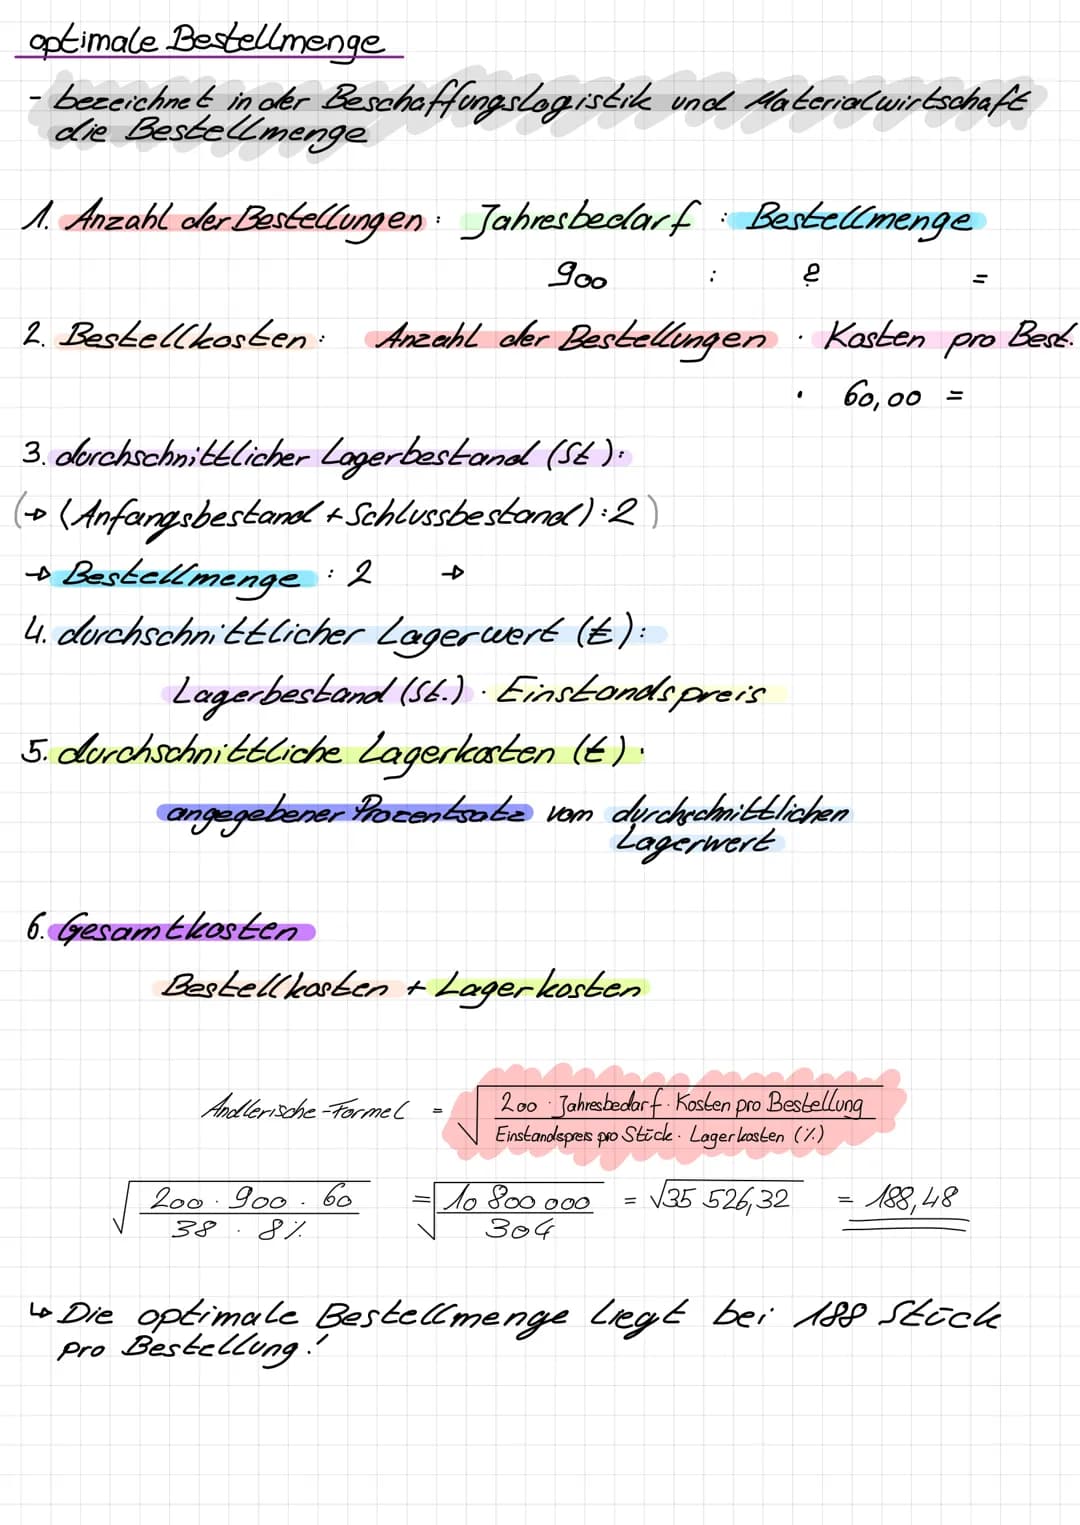 optimale Bestellmenge
- bezeichnet in der Beschaffungslogistik und Materialwirtschaft
die Bestellmenge
1. Anzahl der Bestellungen : Jahresbedarf : Bestellmenge
900 : ? =
2. Bestellkosten : Anzahl der Bestellungen · Kosten pro Best.
· 60,00 =
3. durchschnittlicher Lagerbestand (St ) :
(→ (Anfangsbestand + Schlussbestand) : 2 )
→ Bestellmenge : 2 →
4. durchschnittlicher Lagerwert (€) :
Lagerbestand (St.) · Einstandspreis
5. durchschnittliche Lagerkosten (€) :
angegebener Prozentsatz vom durchschnittlichen
Lagerwert
6. Gesamtkosten
Bestellkosten + Lagerkosten
Andlerische-Formel = √ 200 · Jahresbedarf · Kosten pro Bestellung
Einstandspreis pro Stück · Lagerkosten (%)
√ 200 · 900 · 60 = √ 10 800 000 = √35 526,32 = 188,48
38 · 8% 304
↳ Die optimale Bestellmenge liegt bei 188 Stück
pro Bestellung!